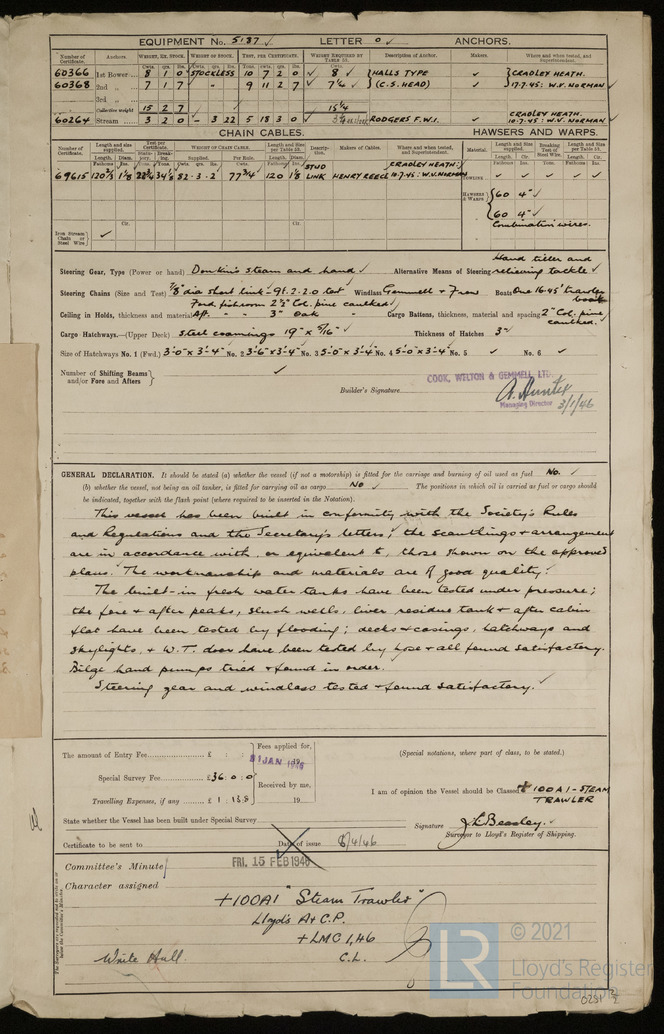 EQUIPMENT No. 5187 ✓ LETTER o ✓ ANCHORS.
Number of Certificate. Anchors. WEIGHT, EX. STOCK. WEIGHT OF STOCK. TEST, PER CERTIFICATE. WEIGHT REQUIRED BY TABLE 53. Description of Anchor. Makers. Where and when tested, and Superintendent.
60366 1st Bower 8 1 0 STOCKLESS 10 7 2 0 ✓ 8 ✓ HALLS TYPE ✓ CRADLEY HEATH.
60368 2nd 7 1 7 9 11 2 7 (C.S. HEAD) ✓ 17.7.45: W.F. NORMAN
3rd
Collective weight 15 2 7 15¼
60264 Stream 3 2 0 - 3 22 5 18 3 0 RODGERS F.W.I. ✓ CRADLEY HEATH. 10.7.45: W.V. NORMAN
CHAIN CABLES. HAWSERS AND WARPS.
Number of Certificate. Length and size supplied. Test per Certificate. WEIGHT OF CHAIN CABLE. Length and size per Table 53. Description. Makers of Cables. Where and when tested, and Superintendent. Material. Length and Size supplied. Breaking Test of Steel Wire. Length and Size per Table 53.
69615 120 1⅛ 82 . 3 . 2 77¾ 120 1⅛ STUD LINK HENRY REECE CRADLEY HEATH: 10.7.45: W.V. NORMAN
HAWSERS & WARPS 60 4" ✓
60 4" ✓
Combination wires.
Iron Stream Chain or Steel Wire ✓
Steering Gear, Type (Power or hand) Donkin's steam and hand ✓ Alternative Means of Steering Hand tiller and relieving tackle ✓
Steering Chains (Size and Test) ⅞" dia short link - 9t. 2. 2. 0 test Windlass Gemmell & Frow Boats One 16.45' trawler boat
Ceiling in Holds, thickness and material Ford. fishroom 2½" Col. pine caulked ✓ Aft. - - 3" Oak ✓ Cargo Battens, thickness, material and spacing 2" Col. pine caulked. ✓
Cargo Hatchways.—(Upper Deck) steel coamings 19" x 5/16" ✓ Thickness of Hatches 3" ✓
Size of Hatchways No. 1 (Fwd.) 3'-0" x 3'-4" No. 2 3'-6" x 3'-4" No. 3 5'-0" x 3'-4" No. 4 5'-0" x 3'-4" No. 5 ✓ No. 6 ✓
Number of Shifting Beams and/or Fore and Afters ✓
COOK, WELTON & GEMMELL, LTD.
Builder's Signature A. Hunter
Managing Director 3/1/46
GENERAL DECLARATION. It should be stated (a) whether the vessel (if not a motorship) is fitted for the carriage and burning of oil used as fuel No. ✓
(b) whether the vessel, not being an oil tanker, is fitted for carrying oil as cargo No ✓ The positions in which oil is carried as fuel or cargo should
be indicated, together with the flash point (where required to be inserted in the Notation).
This vessel has been built in conformity with the Society's Rules
and Regulations and the Secretary's letters; the scantlings & arrangement
are in accordance with, or equivalent to, those shown on the approved
plans. The workmanship and materials are of good quality.
The built-in fresh water tanks have been tested under pressure;
the fore & after peaks, slush wells, liver residue tank & after cabin
flat have been tested by flooding; decks & casings, hatchways and
skylights, & W.T. door have been tested by hose & all found satisfactory.
Bilge hand pumps tried & found in order.
Steering gear and windlass tested & found satisfactory. ✓
The amount of Entry Fee £ : : Fees applied for,
31 JAN 1946
Special Survey Fee £36 : 0 : 0 Received by me,
Travelling Expenses, if any £ 1 : 13 : 8 19
(Special notations, where part of class, to be stated.)
I am of opinion the Vessel should be Classed + 100 A1 - STEAM TRAWLER
State whether the Vessel has been built under Special Survey
Signature J. L. Beasley.
Surveyor to Lloyd's Register of Shipping.
Certificate to be sent to Date of issue 8/4/46
Committee's Minute FRI. 15 FEB 1946
Character assigned
+100A1 "Steam Trawler"
Lloyd's A & C.P.
+LMC 1,46
C.L.
Write Hull
© 2021
LR Lloyd's Register Foundation